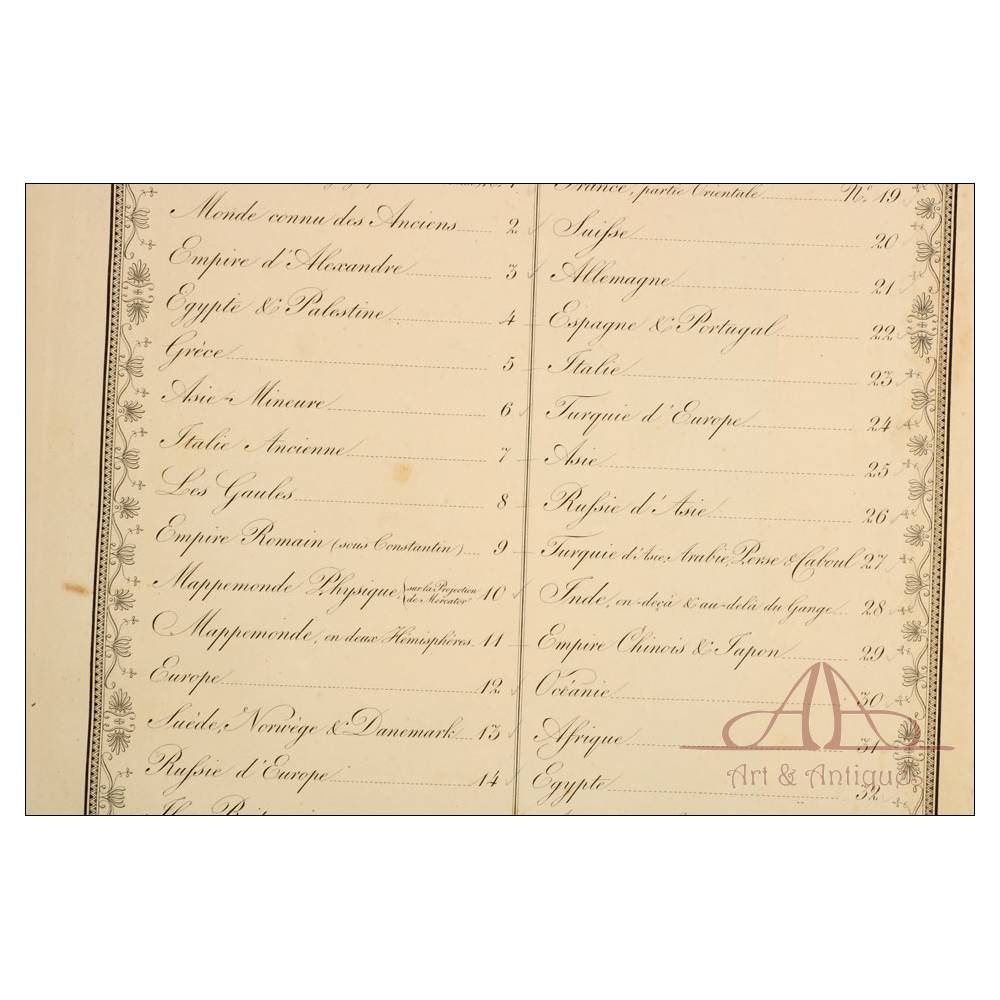 Monde connu des Anciens 2
Empire d'Alexandre 3
Egypte & Palestine 4
Grèce 5
Asie-Mineure 6
Italie Ancienne 7
Les Gaules 8
Empire Romain (sous Constantin) 9
Mappemonde Physique, (sur la Projection de Mercator 10
Mappemonde, en deux Hémisphères 11
Europe 12
Suède, Norwège & Danemark 13
Russie d'Europe 14
France, partie Orientale N.º 19
Suisse 20
Allemagne 21
Espagne & Portugal 22
Italie 23
Turquie d'Europe 24
Asie 25
Russie d'Asie 26
Turquie d'Asie, Arabie, Perse & Caboul 27
Inde, en-deçà & au-delà du Gange 28
Empire Chinois & Japon 29
Océanie 30
Afrique 31
Egypte 32
AA
Art & Antiques